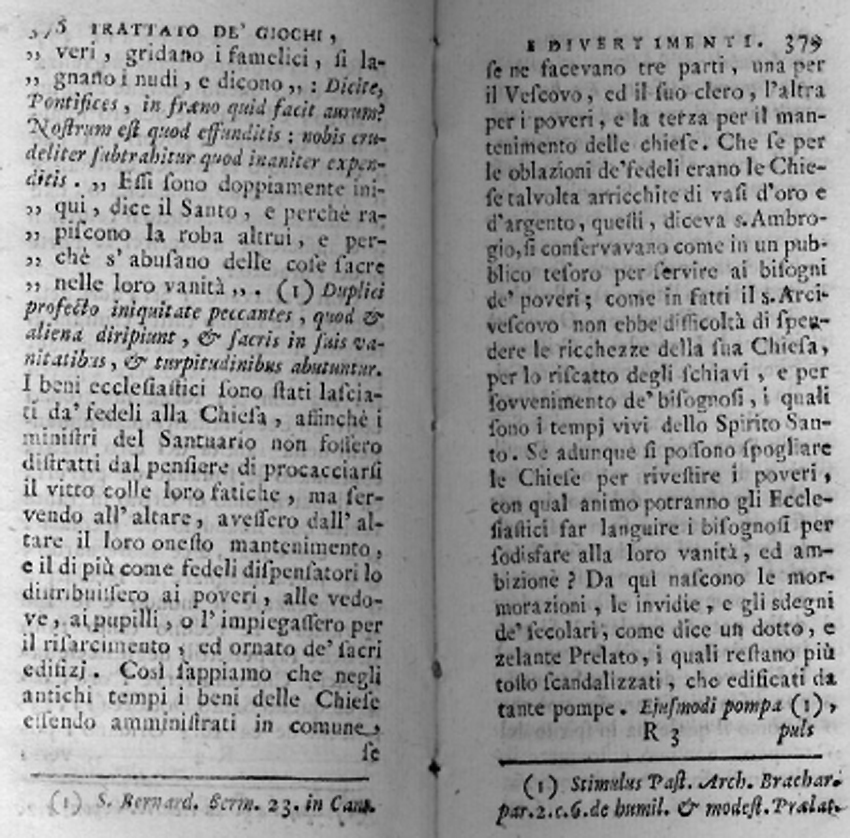 378 TRATTATO DE' GIOCHI,
„ veri, gridano i famelici, ſi la-
„ gnano i nudi, e dicono „: Dicite,
Pontifices, in fræno quid facit aurum?
Noſtrum eſt quod effunditis: nobis cru-
deliter ſubtrahitur quod inaniter expen-
ditis. „ Eſſi ſono doppiamente ini-
„ qui, dice il Santo, e perchè ra-
„ piſcono la roba altrui, e per-
„ chè s'abuſano delle coſe ſacre
„ nelle loro vanità „. (1) Duplici
profecto iniquitate peccantes, quod &
aliena diripiunt, & ſacris in ſuis va-
nitatibus, & turpitudinibus abutuntur.
I beni eccleſiaſtici ſono ſtati laſcia-
ti da' fedeli alla Chieſa, affinchè i
miniſtri del Santuario non foſſero
diſtratti dal penſiere di procacciarſi
il vitto colle loro fatiche, ma ſer-
vendo all'altare, aveſſero dall'al-
tare il loro oneſto mantenimento,
e il di più come fedeli diſpenſatori lo
diſtribuiſſero ai poveri, alle vedo-
ve, ai pupilli, o l'impiegaſſero per
il riſarcimento, ed ornato de' ſacri
edifizj. Così ſappiamo che negli
antichi tempi i beni delle Chieſe
eſſendo amminiſtrati in comune,
ſe
(1) S. Bernard. Serm. 23. in Cant.
E DIVERTIMENTI. 379
ſe ne facevano tre parti, una per
il Veſcovo, ed il ſuo clero, l'altra
per i poveri, e la terza per il man-
tenimento delle chieſe. Che ſe per
le oblazioni de' fedeli erano le Chie-
ſe talvolta arricchite di vaſi d'oro e
d'argento, queſti, diceva s. Ambro-
gio, ſi conſervavano come in un pub-
blico teſoro per ſervire ai biſogni
de' poveri; come in fatti il s. Arci-
veſcovo non ebbe difficoltà di ſpen-
dere le ricchezze della ſua Chieſa,
per lo riſcatto degli ſchiavi, e per
ſovvenimento de' biſognoſi, i quali
ſono i tempj vivi dello Spirito San-
to. Se adunque ſi poſſono ſpogliare
le Chieſe per riveſtire i poveri,
con qual animo potranno gli Eccle-
ſiaſtici far languire i biſognoſi per
ſodisfare alla loro vanità, ed am-
bizione? Da qui naſcono le mor-
morazioni, le invidie, e gli sdegni
de' ſecolari, come dice un dotto, e
zelante Prelato, i quali reſtano più
toſto ſcandalizzati, che edificati da
tante pompe. Ejuſmodi pompa (1),
R 3 puls
(1) Stimulus Paſt. Arch. Brachar.
par. 2. c. 6. de humil. & modeſt. Prælat.